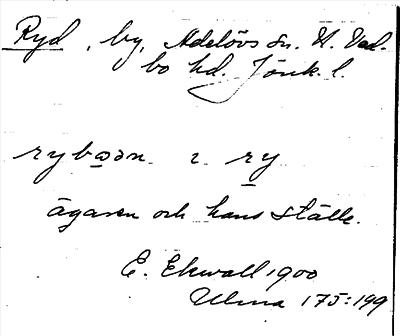 Ryd, by, Adelövs sn. N. Ved-
bo hd. Jönk. l.
rybɷən. ɩ ry
ägaren och hans ställe.
E. Ekwall 1900
Ulma 175:199